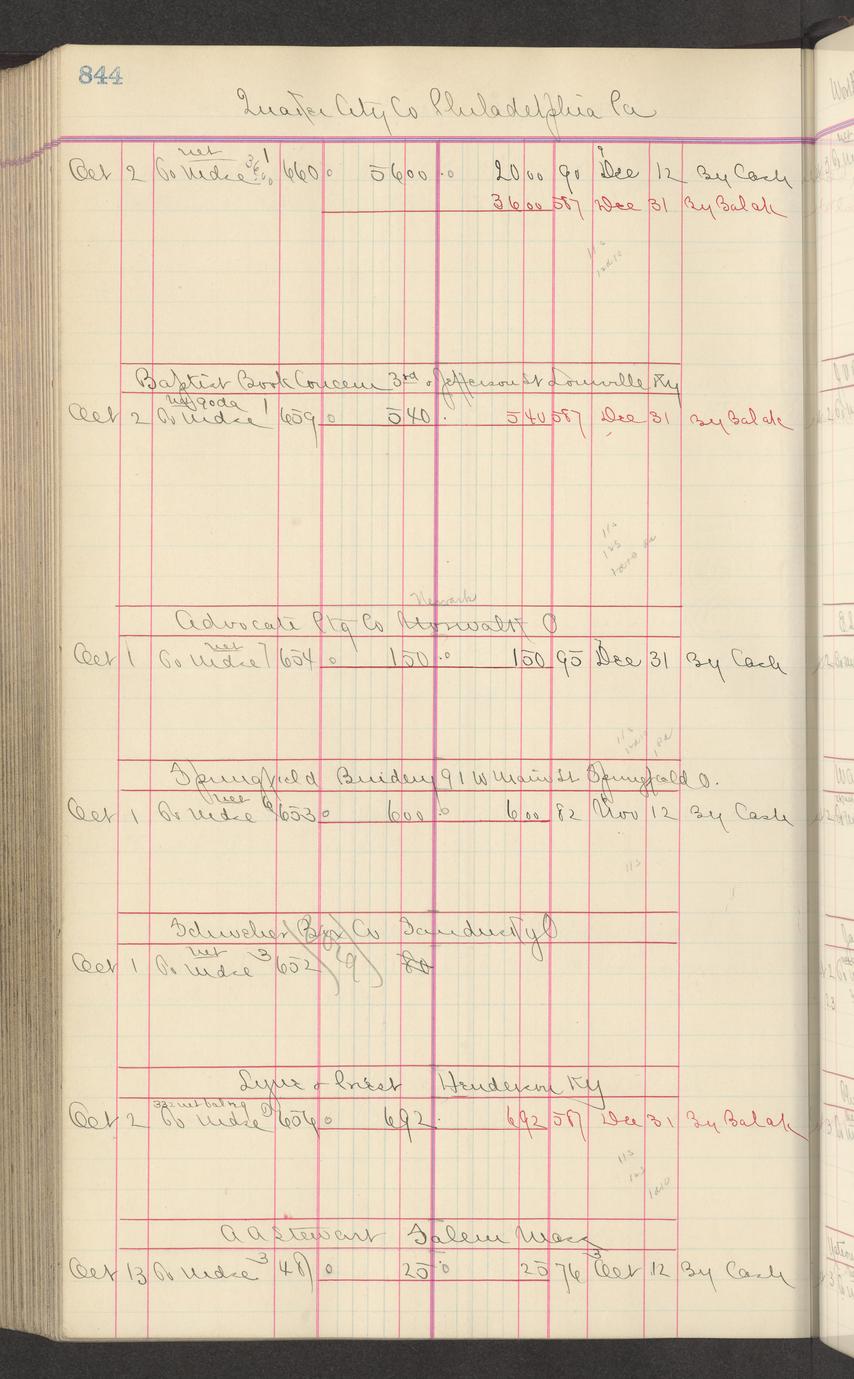 844
Quaker City Co Philadelphia Pa
net
Oct 2 To Mdse 1 660 5600 2000 90 Dec 12 By Cash
3600 587 Dec 31 By Balak
Baptist Book Concern 3rd & Jefferson St Louisville Ky
net 90da
Oct 2 To Mdse 1 659 540 540 587 Dec 31 By Balak
Newark
Advocate Ptg Co Norwalk O
net
Oct 1 To Mdse 7 654 150 150 95 Dec 31 By Cash
Springfield Bindery 91 W Main St Springfield O.
net
Oct 1 To Mdse 6 653 600 600 82 Nov 12 By Cash
Box Co Sandusky O
net
Oct 1 To Mdse 3 652 80
Lyne & Priest Henderson Ky
Oct 2 To Mdse 656 692 692 587 Dec 31 By Balak
A A Stewart Salem Mass
Oct 13 To Mdse 3 487 25 25 76 Oct 12 By Cash